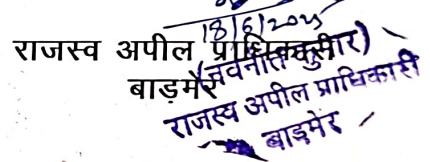 18/6/2025
राजस्व अपील प्राधिकारी
(नवनीत कुमार)
बाड़मेर
राजस्व अपील प्राधिकारी
बाड़मेर